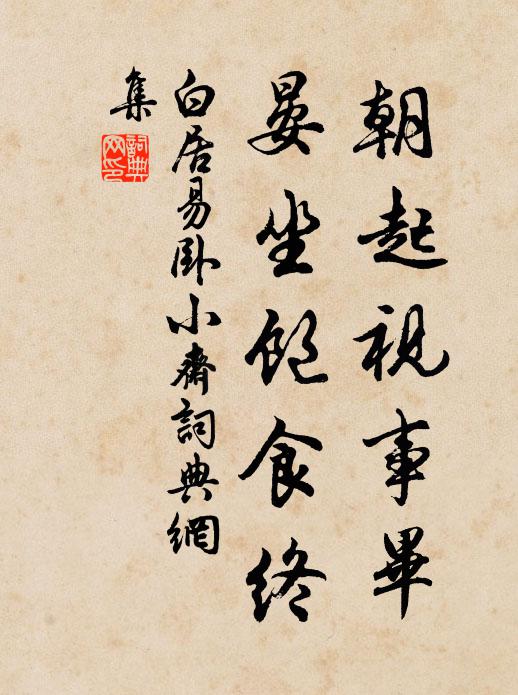 朝起視事畢
晏坐飽食終
白居易臥小齋詞典網
集
詞典
网印